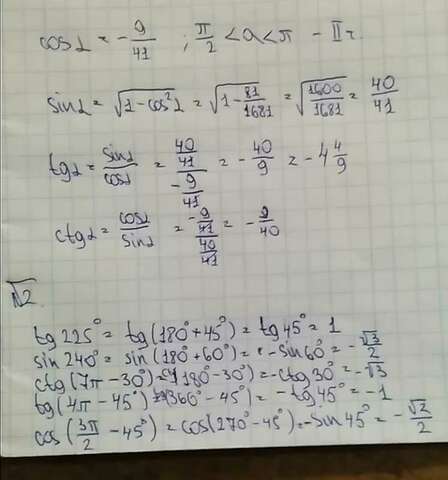 cos α = - 9/41 ; π/2 < α < π - II ч.
sin α = √(1 - cos² α) = √(1 - 81/1681) = √(1600/1681) = 40/41
tg α = sin α / cos α = (40/41) / (- 9/41) = - 40/9 = - 4 4/9
ctg α = cos α / sin α = (- 9/41) / (40/41) = - 9/40
√2.
tg 225° = tg (180° + 45°) = tg 45° = 1
sin 240° = sin (180° + 60°) = - sin 60° = - √3/2
ctg (7π - 30°) = (180° - 30°) = - ctg 30° = - √3
tg (4π - 45°) (360° - 45°) = - tg 45° = - 1
cos (3π/2 - 45°) = cos (270° - 45°) = - sin 45° = - √2/2